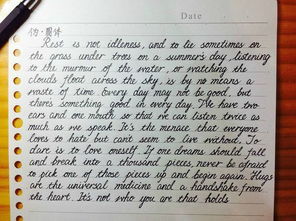 Date
仿·圆体
Rest is not idleness, and to lie sometimes on
the grass under trees on a summer's day, listening
to the murmur of the water, or watching the
clouds float across the sky, is by no means a
waste of time. Every day may not be good, but
there's something good in every day. We have two
ears and one mouth so that we can listen twice as
much as we speak. It's the menace that everyone
loves to hate but can't seem to live without. To
dare is to love oneself. If one dreams should fall
and break into a thousand pieces, never be afraid
to pick one of those pieces up and begin again. Hugs
are the universal medicine and a handshake from
the heart. It's not who you are that holds